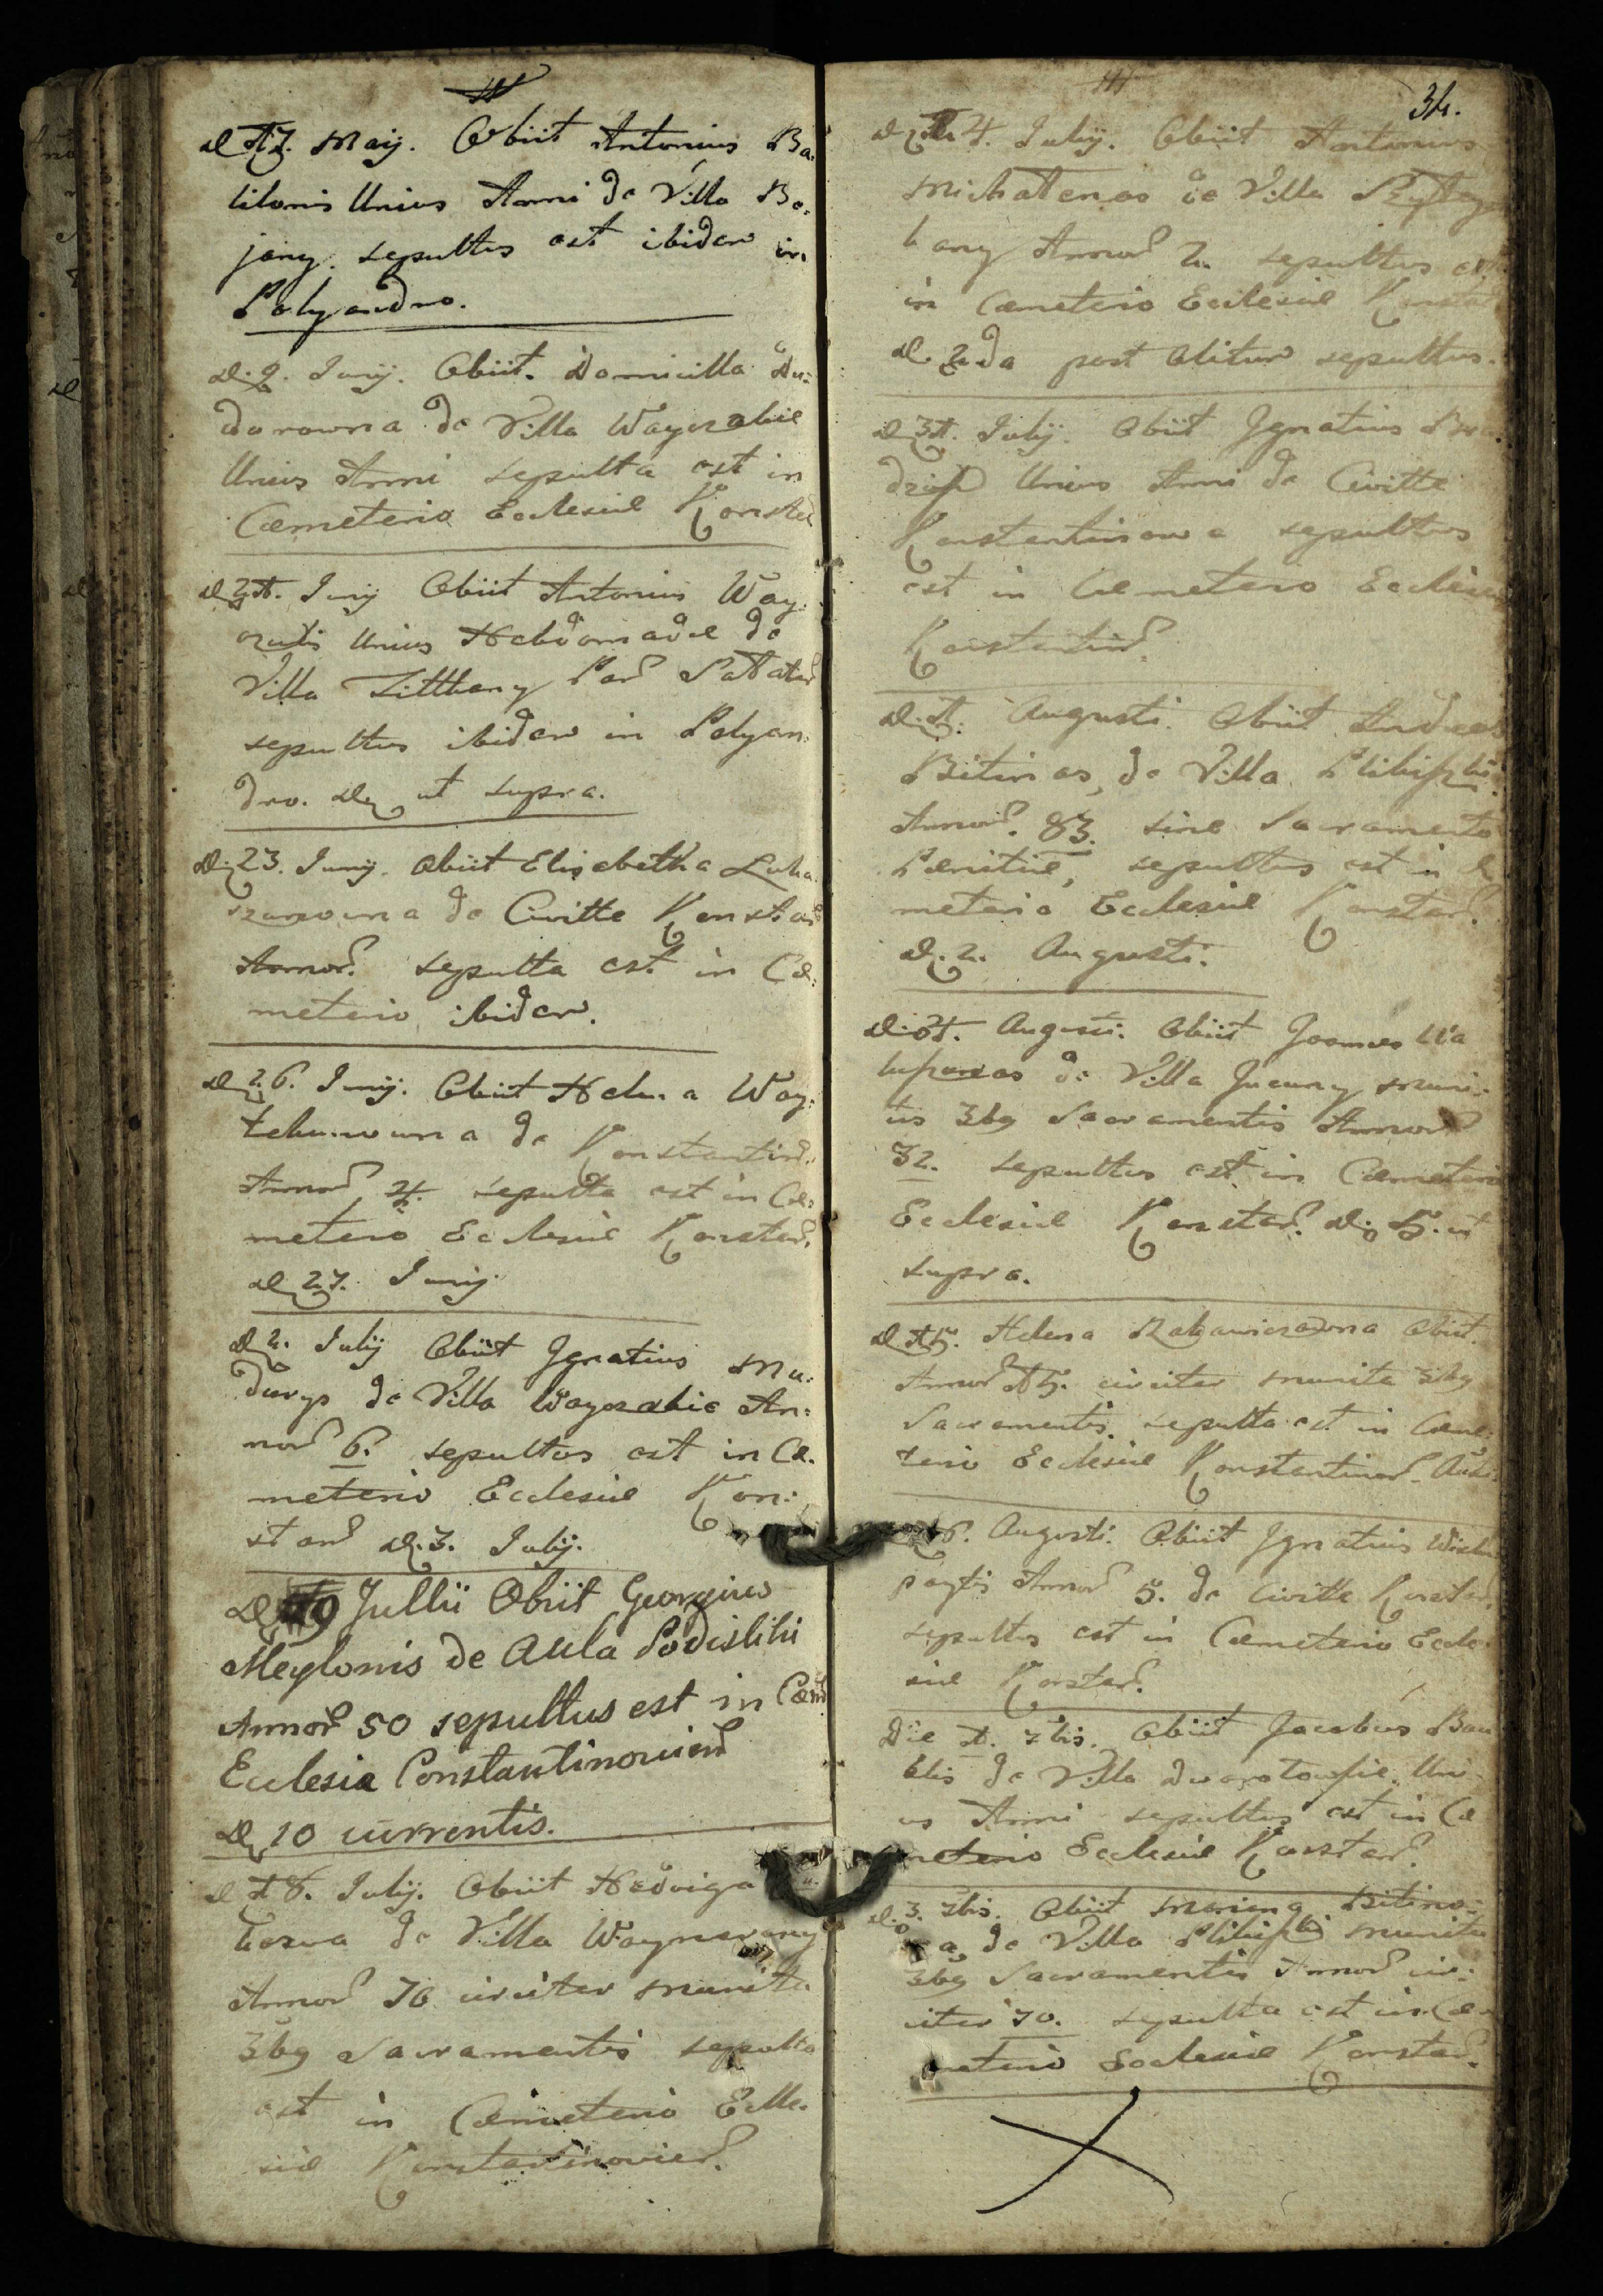 D 17. Maij. Obiit Antonius Ba:
lilonis Unius Anni de Villa Bo:
jany. sepultus est ibidem in
Polyandro.
D. 9. Junij. Obiit. Domicilla Du:
dorowna de Villa Wayszalie
Unius Anni sepulta est in
Cœmeterio Ecclesiæ Konstan
D 21. Junij Obiit Antonius Way:
szutis Unius Hebdomadæ de
Villa Zitthany Par
sepultus ibidem in Polyan:
dro. D ut supra.
D. 23. Junij. Obiit Elisabetha
de Civitte Konstan
Annor. sepulta est in Cæ:
meterio ibidem.
D 26. Junij. Obiit Helena Way:
de Konstantin.
Annor 4. sepulta est in Cæ:
meterio Ecclesiæ Konstan.
D 27. Junij.
D 2. Julij Obiit Ignatius Ma:
durys de Villa Wayszalie An:
nor 6. sepultus est in Cæ.
meterio Ecclesiæ Kon:
stan D. 3. Julij.
D 10 Jullii Obiit Georgius
Meylonis de Aula Podisliki
Annor 50 sepultus est in Cœm
Ecclesia Constantinovien
D 10 currentis.
D 18. Julij. Obiit Hedviga
de Villa
Annor 70 circiter munita
3bg Sacramentis sepulta
est in Cœmeterio Eccle.
siæ Konstantinovien.
34.
D 24. Julij. Obiit Antonius
Michalenas de Villa
Annor 2. sepultus est
in Cœmeterio Ecclesiæ Konstan
D. 2da post obitum sepultus.
D 31. Julij. Obiit Ignatius
Unius Anni de Civitte
Konstantinowa sepultus
est in Cæmeterio Ecclesiæ
Konstantin.
D. 1. Augusti. Obiit Andreas
Bitinas, de Villa
Annor. 83. sine Sacramento
Pænitiæ, sepultus est in Cæ
meterio Ecclesiæ Konstan.
D. 2. Augusti.
Augusti. Obiit Joannes
de Villa Jucuny muni:
tus 3bg Sacramentis Annor
32. sepultus est in Cœmeterio
Ecclesiæ Konstan. D 5. ut
supra.
D 15. Helena Obiit.
Annor 15. circiter munita 3bg
Sacramentis. sepulta est in Cæme:
terio Ecclesiæ Konstantinov.
6. Augusti. Obiit Ignatius
Annor 5. de Civitte Konstan.
sepultus est in Cœmeterio Eccle:
siæ Konstan.
Die 1. 7bis. Obiit Jacobus Bau
blis de Villa Uni
us Anni sepultus est in Cæ
meterio Ecclesiæ Konstan.
D. 3. 7bis. Obiit Mariana Bitino:
a de Villa munita
3bg Sacramentis Annor cir:
citer 70. sepulta est in Cæ
meterio Ecclesiæ Konstan.